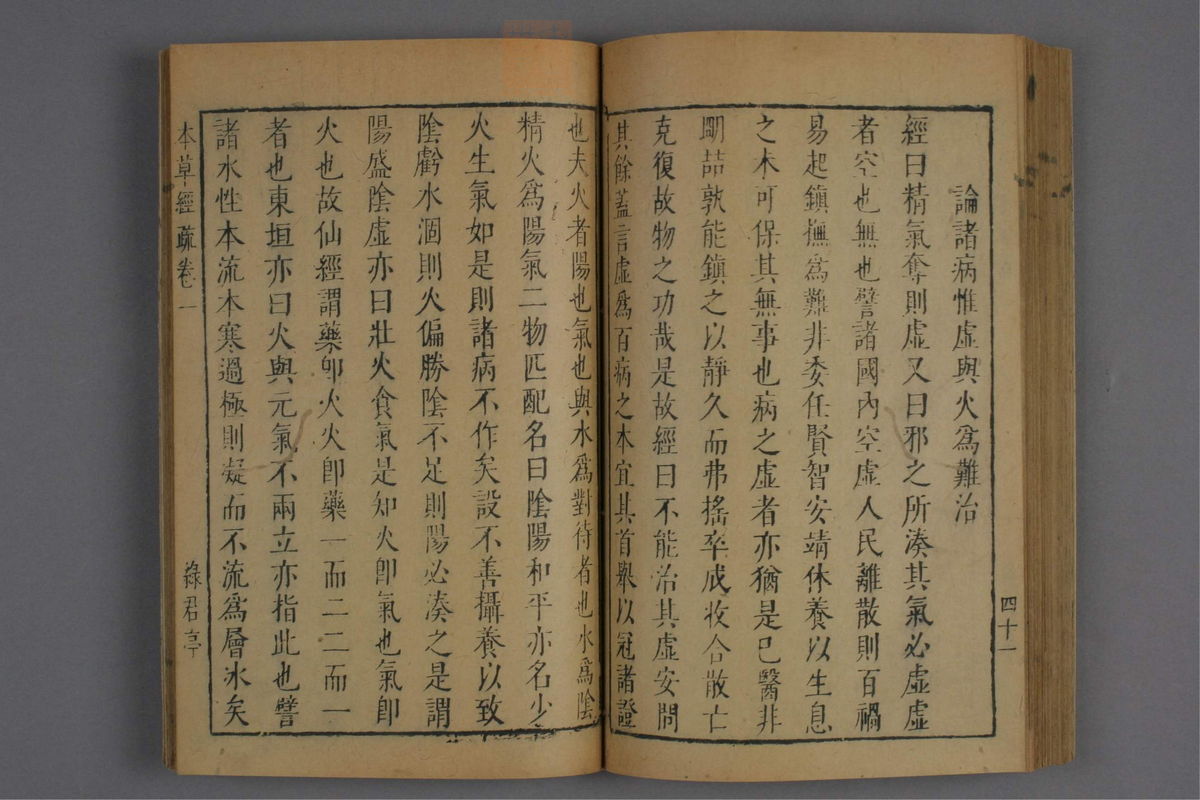 論諸病惟虛與火爲難治
經曰精氣奪則虛又曰邪之所湊其氣必虛虛
者空也無也譬諸國內空虛人民離散則百禍
易起鎮撫爲難非委任賢智安靖休養以生息
之未可保其無事也病之虛者亦猶是已醫非
明喆孰能鎮之以靜久而弗搖卒成收合散亡
克復故物之功哉是故經曰不能治其虛安問
其餘蓋言虛爲百病之本宜其首舉以冠諸證
四十一
也夫火者陽也氣也與水爲對待者也水爲陰
精火爲陽氣二物匹配名曰陰陽和平亦名少
火生氣如是則諸病不作矣設不善攝養以致
陰虧水涸則火偏勝陰不足則陽必湊之是謂
陽盛陰虛亦曰壯火食氣是知火卽氣也氣卽
火也故仙經謂藥卽火火卽藥一而二二而一
者也東垣亦曰火與元氣不兩立亦指此也譬
諸水性本流本寒過極則凝而不流爲層冰矣
本草經疏卷一
綠君亭